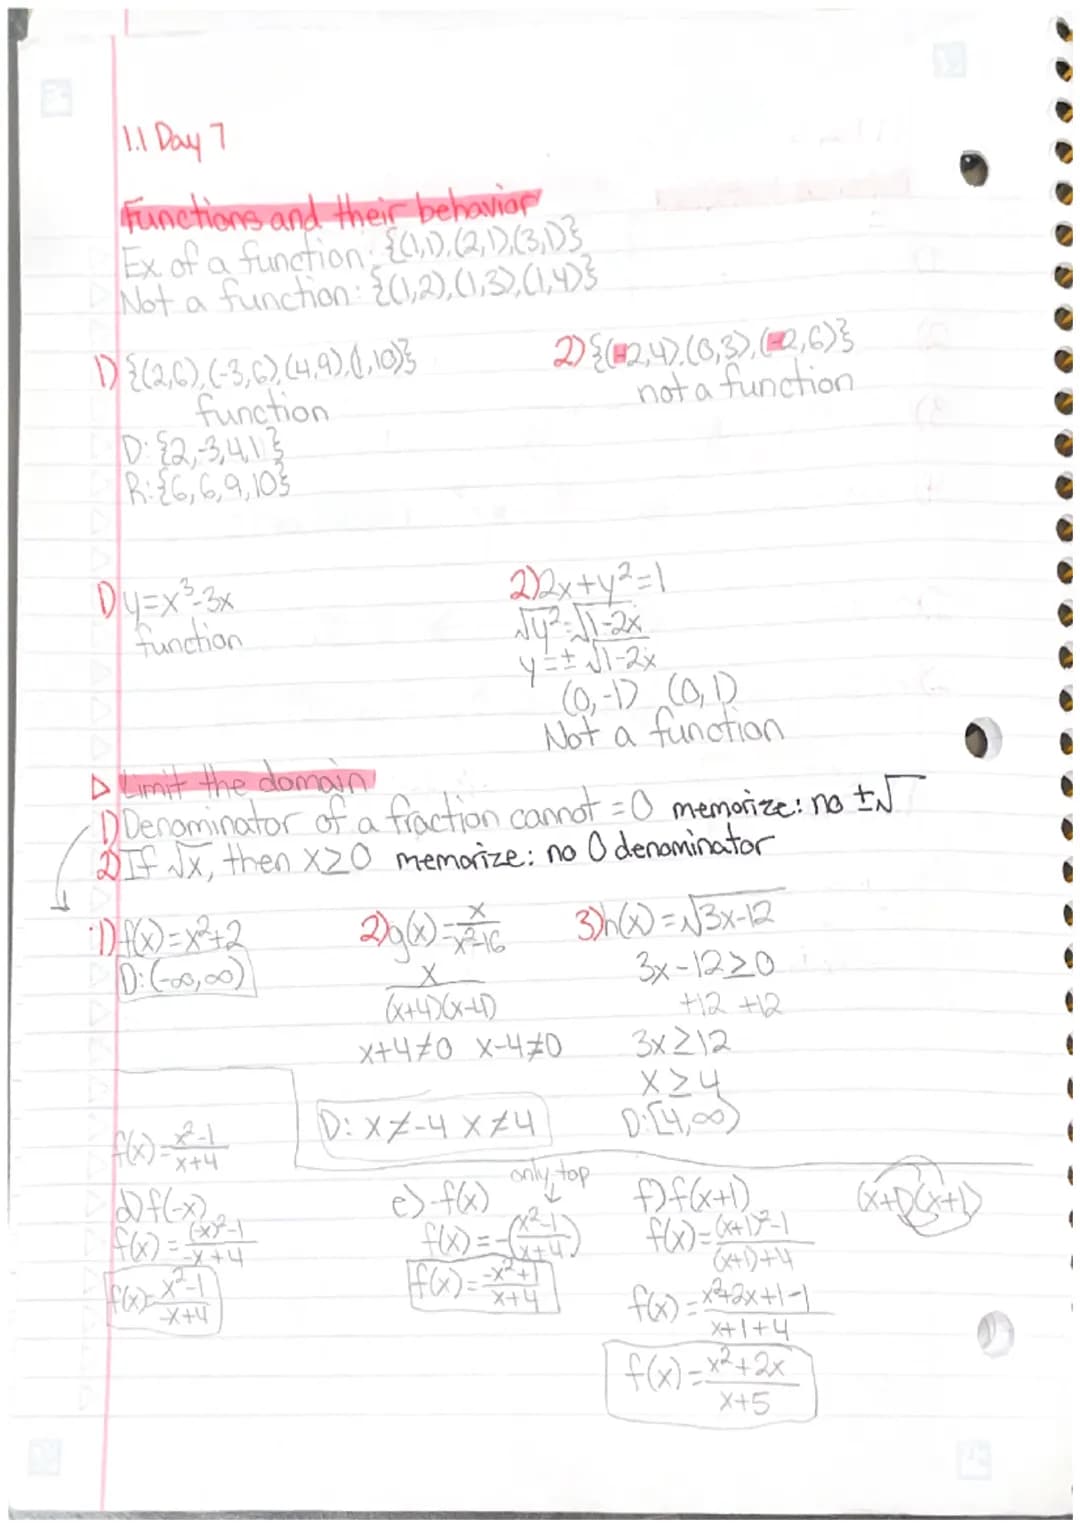 1.1 Day 7
Functions and their behavior
Ex of a function: {(1,1),(2,1),(3,1)}
Not a function: {(1,2),(1,3),(1,4)}
1) {(2,6),(-3,6),(4,9),(1,10)}
function
D: {2,-3,4,1}
R: {6,6,9,10}
2) {(-2,4),(0,3),(-2,6)}
not a function
1) y=x³-3x
function
2) 2x+y²=1
√y²=√1-2x
y=±√1-2x
(0,-1) (0,1)
Not a function
▷ Limit the domain
1) Denominator of a fraction cannot =0 memorize: no ±√
2) If √x, then x≥0 memorize: no 0 denominator
1) f(x)=x²+2
D: (-∞,∞)
2) g(x)=x/x²-16
x/(x+4)(x-4)
x+4≠0 x-4≠0
D: x≠-4 x≠4
3) h(x)=√3x-12
3x-12≥0
+12 +12
3x≥12
x≥4
D:[4,∞)
f(x)=x²-1/x+4
d) f(-x)
f(x)=(-x)²-1/-x+4
f(x)=x²-1/-x+4
e) -f(x)
only top
f(x)=-(x²-1/x+4)
f(x)=-x²+1/x+4
f) f(x+1)
f(x)=(x+1)²-1/(x+1)+4
f(x)=x²+2x+1-1/x+1+4
f(x)=x²+2x/x+5
(x+1)(x+1)